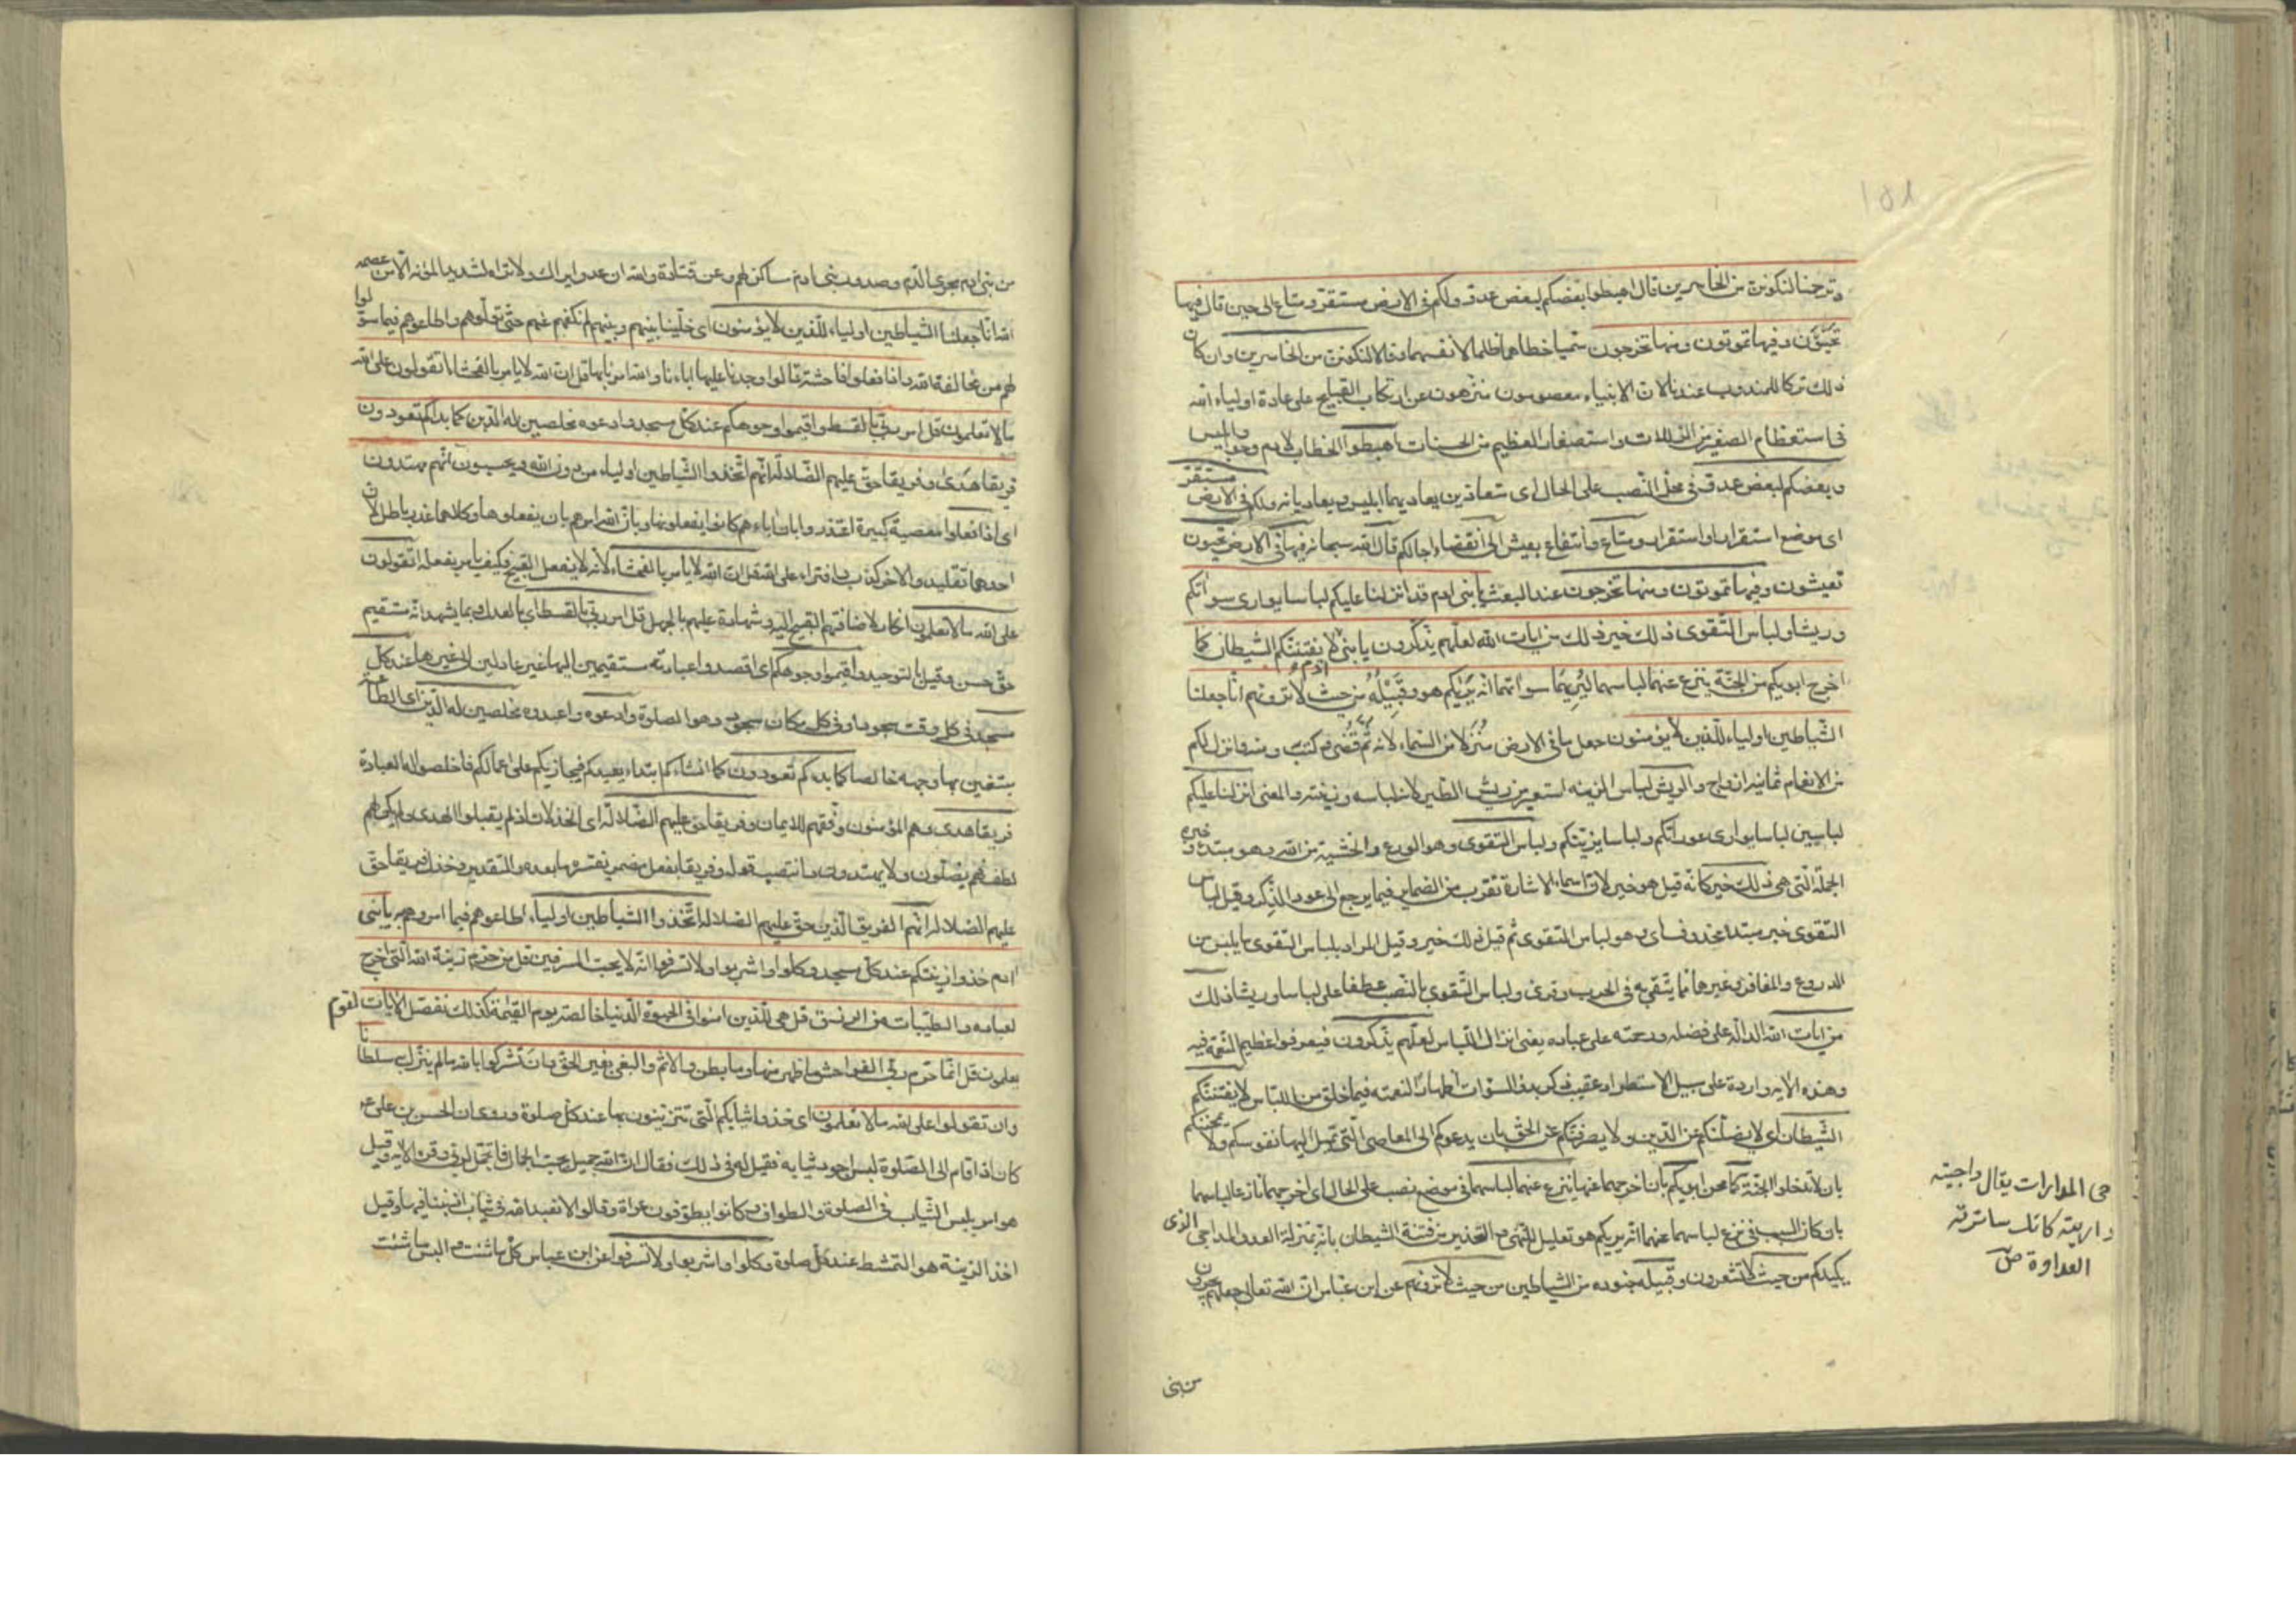 وترحمنا لنكونن من الخاسرين قال اهبطوا بعضكم لبعض عدو ولكم في الارض مستقر ومتاع الى حين قال فيها
تحيون وفيها تموتون ومنها تخرجون سميا خطاهما ظلما لانفسهما وقالا لنكونن من الخاسرين وان كان
ذلك تركا للمندوب عندنا لان الانبياء معصومون منزهون عن ارتكاب القبايح على عادة اولياء الله
في استعظام الصغير من الزلات واستصغار العظيم من الحسنات اهبطوا الخطاب لادم وحوا وابليس
وبعضكم لبعض عدو في محل النصب على الحال اى متعادين يعاديهما ابليس ويعاديانه ولكم في الارض مستقر
اى موضع استقرار او استقرار ومتاع وانتفاع بعيش الى انقضاء اجالكم قال الله سبحانه فيها في الارض تحيون
تعيشون وفيها تموتون ومنها تخرجون عند البعث يا بنى ادم قد انزلنا عليكم لباسا يوارى سوآتكم
وريشا ولباس التقوى ذلك خير ذلك من ايات الله لعلهم يذكرون يا بنى ادم لا يفتننكم الشيطان كما
اخرج ابويكم من الجنة ينزع عنهما لباسهما ليريهما سوآتهما انه يريكم هو وقبيله من حيث لا ترونهم انا جعلنا
الشياطين اولياء للذين لا يؤمنون جعل ما في الارض منزلا من السماء لانه قضى ثم وكتب ومنه وانزل لكم
من الانعام ثمانية ازواج والريش لباس الزينه استعير من ريش الطير لانه لباسه وزينته والمعنى انزلنا عليكم
لباسين لباسا يوارى عوراتكم ولباسا يزينكم ولباس التقوى وهو الورع والخشية من الله وهو مبتدء وخبره
الجملة التى هى ذلك خير كانه قيل هو خير لان اسماء الاشارة تقرب من الضماير فيما يرجع الى عود الذكر وقيل لباس
التقوى خبر مبتدا محذوف اى وهو لباس التقوى ثم قيل ذلك خير وقيل المراد بلباس التقوى ما يلبس من
الدروع والمغافر وغيرها مما يتقى به في الحرب وقرى ولباس التقوى بالنصب عطفا على لباسا وريشا ذلك
من ايات الله الدالة على فضله ورحمته على عباده يعنى انزال اللباس لعلهم يذكرون فيعرفوا عظيم النعمة فيه
وهذه الايه واردة على سبيل الاستطراد عقيب ذكر بدو السوات اظهارا لنعمته فيما خلق من اللباس لا يفتننكم
الشيطان اى لا يضلنكم عن الدين ولا يصرفنكم عن الحق بان يدعوكم الى المعاصى التى تميل اليها نفوسكم ولا يمحننكم
بان لا تدخلوا الجنة كما محن ابويكم بان اخرجهما عنها ينزع عنهما لباسهما في موضع نصب على الحال اى اخرجهما نازعا لباسهما
بان كان السبب في نزع لباسهما عنهما انه يريكم هو تعليل للنهى والتحذير من فتنة الشيطان بانه بمنزلة العدو المداجى الذى
يكيدكم من حيث لا تشعرون وقبيله جنوده من الشياطين من حيث لا ترونهم عن ابن عباس ان الله تعالى جعلهم يجرون
من بنى
يقال داجيته
كانك ساترته
العداوة ص
من بنى ادم مجرى الدم وصدور بنى ادم مساكن لهم وعن قتادة والله ان عدوا يراك ولا تراه لشديد المؤنه الا من عصمه
الله انا جعلنا الشياطين اولياء للذين لا يؤمنون اى خلينا بينهم وبينهم لم نكفهم عنهم حتى تولوهم واطاعوهم فيما سولوا
لهم من مخالفة الله واذا فعلوا فاحشة قالوا وجدنا عليها اباءنا والله امرنا بها قل ان الله لا يامر بالفحشاء اتقولون على الله
ما لا تعلمون قل امر ربى بالقسط واقيموا وجوهكم عند كل مسجد وادعوه مخلصين له الدين كما بداكم تعودون
فريقا هدى وفريقا حق عليهم الضلالة انهم اتخذوا الشياطين اولياء من دون الله ويحسبون انهم مهتدون
اى اذا فعلوا معصية كبيرة اعتذروا بان اباءهم كانوا يفعلونها وبان الله امرهم بان يفعلوها وكلاهما عذر باطل لان
احدهما تقليد والاخر كذب وافتراء على الله قل ان الله لا يامر بالفحشاء لانه لا يفعل القبيح فكيف يامر بفعله اتقولون
على الله ما لا تعلمون انكار لاضافتهم القبيح اليه وشهادة عليهم بالجهل قل امر ربى بالقسط اى بالعدل وبما يشهد انه مستقيم
حق حسن وقيل بالتوحيد واقيموا وجوهكم اى اقصدوا عبادته مستقيمين اليها غير عادلين الى غيرها عند كل
مسجد في كل وقت سجود او في كل مكان سجود وهو الصلوة وادعوه واعبدوه مخلصين له الدين اى الطاعة
مبتغين بها وجهه خالصا كما بداكم تعودون كما انشاكم ابتداء يعيدكم فيجازيكم على اعمالكم فاخلصوا له العبادة
فريقا هدى وهم المؤمنون وفقهم للايمان وفريقا حق عليهم الضلالة اى الخذلان اذ لم يقبلوا الهدى ولم يكن لهم
لطف فهم يضلون ولا يهتدون وانتصب قوله وفريقا بفعل مضمر يفسره ما بعده والتقدير وخذل فريقا حق
عليهم الضلالة انهم الفريق الذين حق عليهم الضلالة اتخذوا الشياطين اولياء اطاعوهم فيما امروهم به يا بنى
ادم خذوا زينتكم عند كل مسجد وكلوا واشربوا ولا تسرفوا انه لا يحب المسرفين قل من حرم زينة الله التى اخرج
لعباده والطيبات من الرزق قل هى للذين امنوا في الحيوة الدنيا خالصة يوم القيمة كذلك نفصل الايات لقوم
يعلمون قل انما حرم ربى الفواحش ما ظهر منها وما بطن والاثم والبغى بغير الحق وان تشركوا بالله ما لم ينزل به سلطانا
وان تقولوا على الله ما لا تعلمون اى خذوا ثيابكم التى تتزينون بها عند كل صلوة وروى ان الحسن بن على ع
كان اذا قام الى الصلوة لبس اجود ثيابه فقيل له في ذلك فقال ان الله جميل يحب الجمال فاتجمل لربى وقرا الايه وقيل
هو امر بلبس الثياب في الصلوة والطواف وكانوا يطوفون عراة وقالوا لا نعبد الله في ثياب اذنبنا فيها وقيل
اخذ الزينة هو التمشط عند كل صلوة وكلوا واشربوا ولا تسرفوا عن ابن عباس كل ما شئت والبس ما شئت